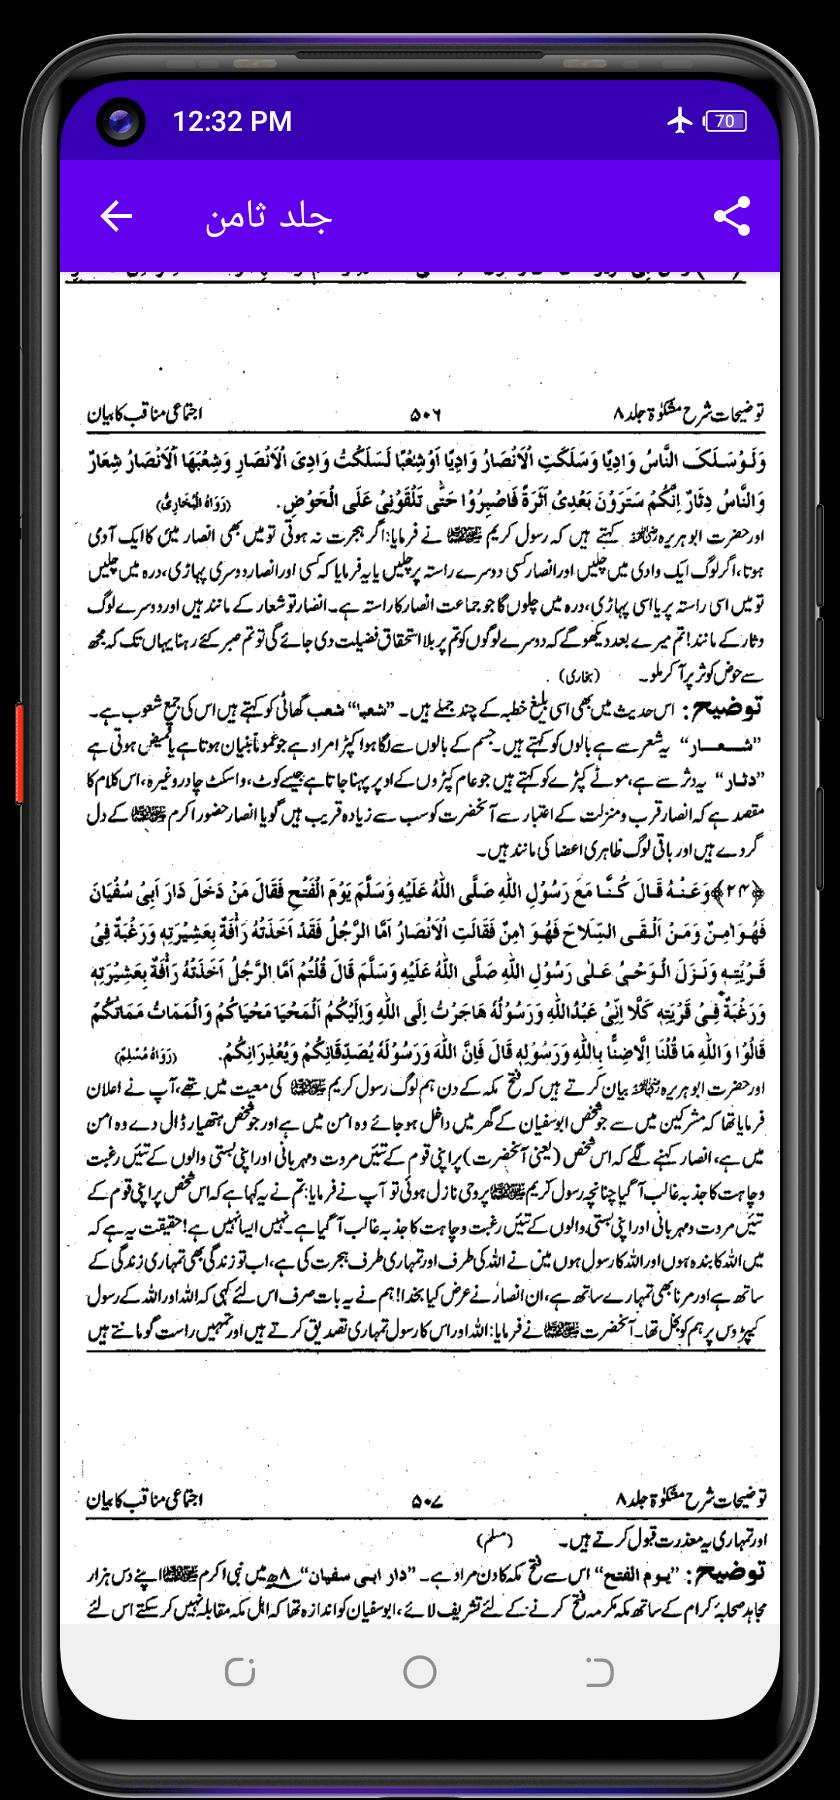 12:32 PM
70
جلد ثامن
توضیحات شرح مشکوٰۃ جلد ۸
۵۰۶
اجتماعی مناقب کا بیان
وَلَوْسَلَکَ النَّاسُ وَادِیًا وَسَلَکَتِ الْاَنْصَارُ وَادِیًا اَوْشِعْبًا لَسَلَکْتُ وَادِیَ الْاَنْصَارِ وَشِعْبَهَا اَلْاَنْصَارُ شِعَارٌ
وَالنَّاسُ دِثَارٌ اِنَّکُمْ سَتَرَوْنَ بَعْدِیْ اَثَرَةً فَاصْبِرُوْا حَتّٰی تَلْقَوْنِیْ عَلَی الْحَوْضِ. (رَوَاهُ الْبُخَارِیُّ)
اور حضرت ابوہریرہ رضی اللہ عنہ کہتے ہیں کہ رسول کریم ﷺ نے فرمایا: اگر ہجرت نہ ہوتی تو میں بھی انصار میں کا ایک آدمی
ہوتا، اگر لوگ ایک وادی میں چلیں اور انصار کسی دوسرے راستہ پر چلیں یا یہ فرمایا کہ کسی اور انصار دوسری پہاڑی، درہ میں چلیں
تو میں اسی راستہ پر یا اسی پہاڑی، درہ میں چلوں گا جو جماعت انصار کا راستہ ہے۔ انصار تو شعار کے مانند ہیں اور دوسرے لوگ
دثار کے مانند! تم میرے بعد دیکھو گے کہ دوسرے لوگوں کو تم پر بلا استحقاق فضیلت دی جائے گی تو تم صبر کئے رہنا یہاں تک کہ مجھ
سے حوض کوثر پر آ کر ملو۔ (بخاری)
توضیح: اس حدیث میں بھی اسی بلیغ خطبہ کے چند جملے ہیں۔ "شعبا" شعب گھاٹی کو کہتے ہیں اس کی جمع شعوب ہے۔
"شعار" یہ شعر سے ہے بالوں کو کہتے ہیں۔ جسم کے بالوں سے لگا ہوا کپڑا مراد ہے جو عموماً بنیان ہوتا ہے یا قمیض ہوتی ہے
"دثار" یہ دثر سے ہے، موٹے کپڑے کو کہتے ہیں جو عام کپڑوں کے اوپر پہنا جاتا ہے جیسے کوٹ، واسکٹ چادر وغیرہ، اس کلام کا
مقصد ہے کہ انصار قرب و منزلت کے اعتبار سے آنحضرت کو سب سے زیادہ قریب ہیں گویا انصار حضور اکرم ﷺ کے دل
گردے ہیں اور باقی لوگ ظاہری اعضا کی مانند ہیں۔
﴿۲۴﴾ وَعَنْهُ قَالَ کُنَّا مَعَ رَسُوْلِ اللهِ صَلَّی اللهُ عَلَیْهِ وَسَلَّمَ یَوْمَ الْفَتْحِ فَقَالَ مَنْ دَخَلَ دَارَ اَبِیْ سُفْیَانَ
فَهُوَ اٰمِنٌ وَمَنْ اَلْقَی السِّلَاحَ فَهُوَ اٰمِنٌ فَقَالَتِ الْاَنْصَارُ اَمَّا الرَّجُلُ فَقَدْ اَخَذَتْهُ رَاْفَةٌ بِعَشِیْرَتِهٖ وَرَغْبَةٌ فِیْ
قَرْیَتِهٖ وَنَزَلَ الْوَحْیُ عَلٰی رَسُوْلِ اللهِ صَلَّی اللهُ عَلَیْهِ وَسَلَّمَ قَالَ قُلْتُمْ اَمَّا الرَّجُلُ اَخَذَتْهُ رَاْفَةٌ بِعَشِیْرَتِهٖ
وَرَغْبَةٌ فِیْ قَرْیَتِهٖ کَلَّا اِنِّیْ عَبْدُ اللهِ وَرَسُوْلُهٗ هَاجَرْتُ اِلَی اللهِ وَاِلَیْکُمْ اَلْمَحْیَا مَحْیَاکُمْ وَالْمَمَاتُ مَمَاتُکُمْ
قَالُوْا وَاللهِ مَا قُلْنَا اِلَّا ضِنًّا بِاللهِ وَرَسُوْلِهٖ قَالَ فَاِنَّ اللهَ وَرَسُوْلَهٗ یُصَدِّقَانِکُمْ وَیُعْذِرَانِکُمْ. (رَوَاهُ مُسْلِمٌ)
اور حضرت ابوہریرہ رضی اللہ عنہ بیان کرتے ہیں کہ فتح مکہ کے دن ہم لوگ رسول کریم ﷺ کی معیت میں تھے، آپ نے اعلان
فرمایا تھا کہ مشرکین میں سے جو شخص ابوسفیان کے گھر میں داخل ہو جائے وہ امن میں ہے اور جو شخص ہتھیار ڈال دے وہ امن
میں ہے، انصار کہنے لگے کہ اس شخص (یعنی آنحضرت) پر اپنی قوم کے تئیں مروت و مہربانی اور اپنی بستی والوں کے تئیں رغبت
وچاہت کا جذبہ غالب آ گیا چنانچہ رسول کریم ﷺ پر وحی نازل ہوئی تو آپ نے فرمایا: تم نے یہ کہا ہے کہ اس شخص پر اپنی قوم کے
تئیں مروت و مہربانی اور اپنی بستی والوں کے تئیں رغبت وچاہت کا جذبہ غالب آ گیا ہے۔ نہیں ایسا نہیں ہے! حقیقت یہ ہے کہ
میں اللہ کا بندہ ہوں اور اللہ کا رسول ہوں میں نے اللہ کی طرف اور تمہاری طرف ہجرت کی ہے، اب تو زندگی بھی تمہاری زندگی کے
ساتھ ہے اور مرنا بھی تمہارے ساتھ ہے، ان انصار نے عرض کیا بخدا! ہم نے یہ بات صرف اس لئے کہی کہ اللہ اور اللہ کے رسول
پر ہم کو بخل تھا۔ آنحضرت ﷺ نے فرمایا: اللہ اور اس کا رسول تمہاری تصدیق کرتے ہیں اور تمہیں راست گو مانتے ہیں
توضیحات شرح مشکوٰۃ جلد ۸
۵۰۷
اجتماعی مناقب کا بیان
اور تمہاری یہ معذرت قبول کرتے ہیں۔ (مسلم)
توضیح: "یوم الفتح" اس سے فتح مکہ کا دن مراد ہے۔ "دار ابی سفیان" ۸ھ میں نبی اکرم ﷺ اپنے دس ہزار
مجاہد صحابۂ کرام کے ساتھ مکہ مکرمہ فتح کرنے کے لئے تشریف لائے، ابوسفیان کو اندازہ تھا کہ اہل مکہ مقابلہ نہیں کر سکتے اس لئے